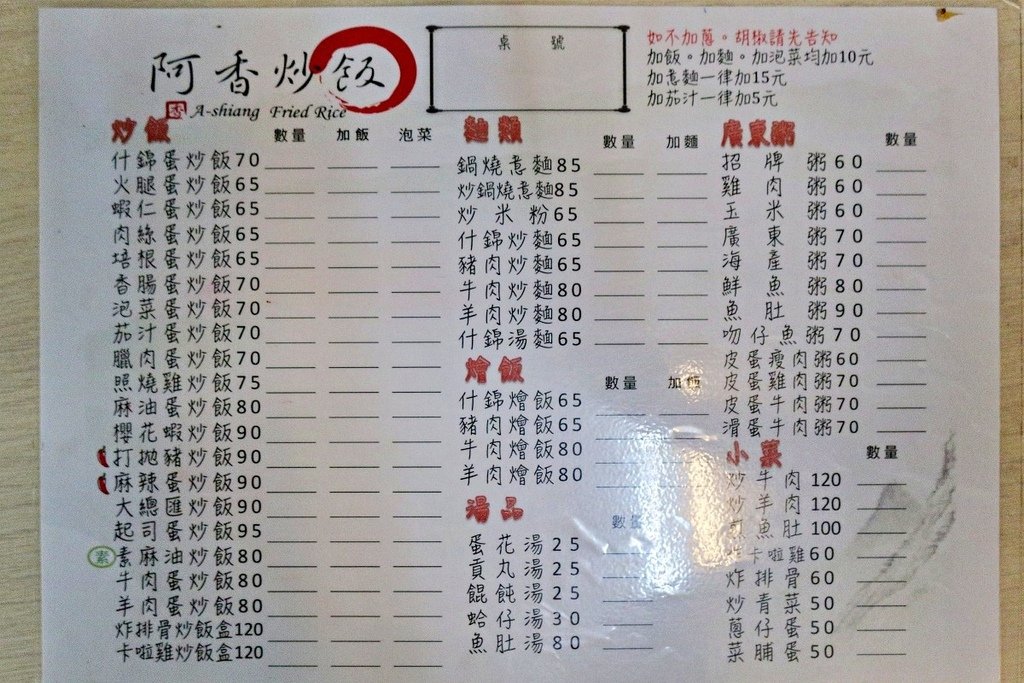 阿香炒飯
香 A-shiang Fried Rice
桌 號
如不加蔥。胡椒請先告知
加飯。加麵。加泡菜均加10元
加意麵一律加15元
加茄汁一律加5元
炒飯 數量 加飯 泡菜
什錦蛋炒飯70
火腿蛋炒飯65
蝦仁蛋炒飯65
肉絲蛋炒飯65
培根蛋炒飯65
香腸蛋炒飯70
泡菜蛋炒飯70
茄汁蛋炒飯70
臘肉蛋炒飯70
照燒雞炒飯75
麻油蛋炒飯80
櫻花蝦炒飯90
打拋豬炒飯90
麻辣蛋炒飯90
大總匯炒飯90
起司蛋炒飯95
素 素麻油炒飯80
牛肉蛋炒飯80
羊肉蛋炒飯80
炸排骨炒飯盒120
卡啦雞炒飯盒120
麵類 數量 加麵
鍋燒意麵85
炒鍋燒意麵85
炒米粉65
什錦炒麵65
豬肉炒麵65
牛肉炒麵80
羊肉炒麵80
什錦湯麵65
燴飯 數量 加飯
什錦燴飯65
豬肉燴飯65
牛肉燴飯80
羊肉燴飯80
湯品 數量
蛋花湯25
貢丸湯25
餛飩湯25
蛤仔湯30
魚肚湯80
廣東粥 數量
招牌粥60
雞肉粥60
玉米粥60
廣東粥70
海產粥70
鮮魚粥80
魚肚粥90
吻仔魚粥70
皮蛋瘦肉粥60
皮蛋雞肉粥70
皮蛋牛肉粥70
滑蛋牛肉粥70
小菜 數量
炒牛肉120
炒羊肉120
煎魚肚100
炸卡啦雞60
炸排骨60
炒青菜50
蔥仔蛋50
菜脯蛋50